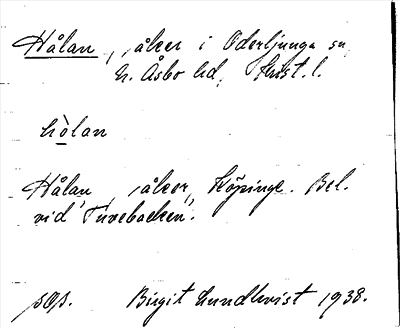 Hålan, åker i Oderljunga sn,
N. Åsbo hd, Krist. l.
hòlan
Hålan, åker, Köpinge. Bel.
vid "Tuvebacken".
pop. Birgit Lundkvist 1938.